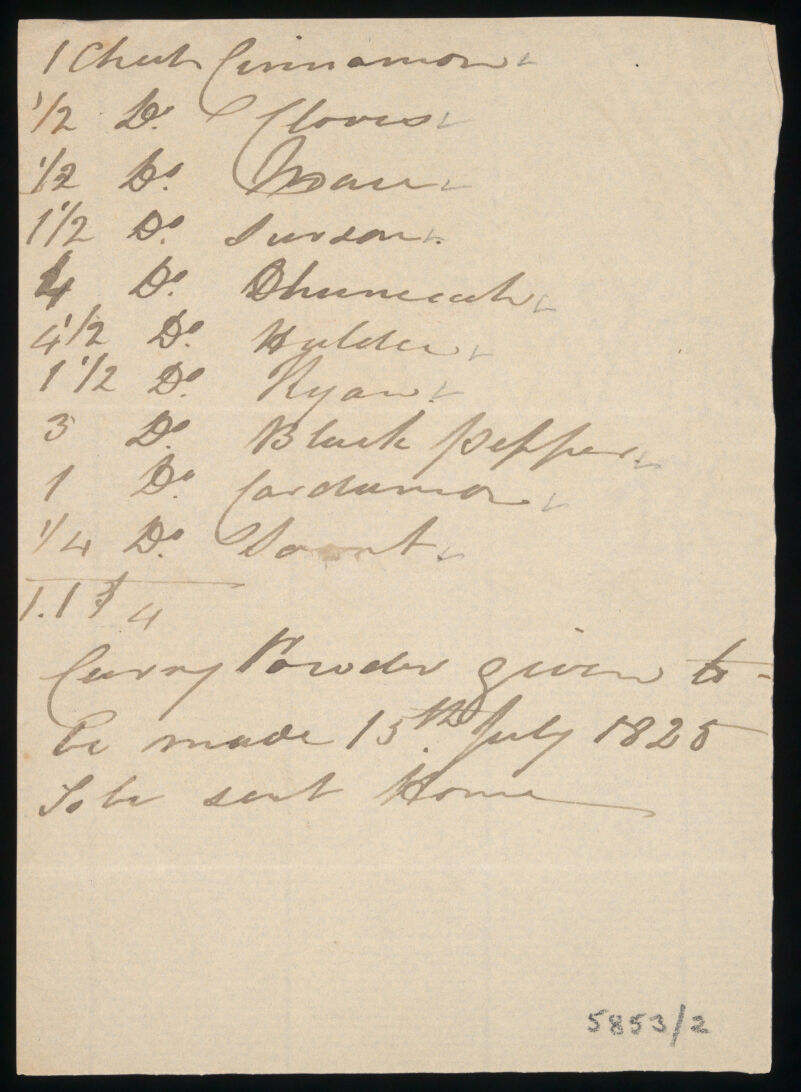 1 Chut. Cinnamon
1/2 Do. Cloves
1/2 Do. Mace
1 1/2 Do. Surson.
4 Do. Dhuneeah
4 1/2 Do. Huldee
1 1/2 Do. Kyan
3 Do. Black pepper
1 Do. Cardamon
1/4 Do. Soont
1.1 3/4
Curry Powder given to
be made 15th July 1825
To be sent Home
5853/2